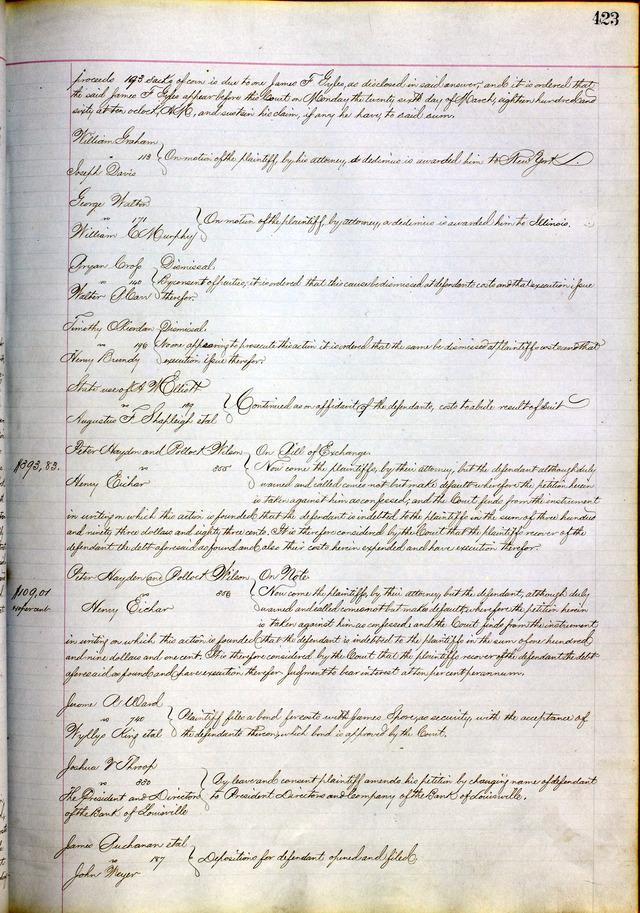 423
proceeds 193 sacks of corn is due to one James F Gyles, as disclosed in said answer, and it is ordered that
the said James F Gyles appear before this Court on Monday the twenty sixth day of March, eighteen hundred and
sixty at ten oclock, A.M., and sustain his claim, if any he have, to said sum.
William Graham
vs 113 On motion of the plaintiff by his attorney, a dedimus is awarded him to New York
Joseph Davis
George Walton
vs 171 On motion of the plaintiff, by attorney, a dedimus is awarded him to Illinois.
William C Murphy
Bryan Cross Dismissal.
vs 140 By consent of parties, it is ordered that this cause be dismissed at defendants costs and that execution issue
Walter Carr therefor.
Timothy ORiordan Dismissal.
vs 176 None appearing to prosecute this action it is ordered that the same be dismissed at plaintiffs costs and that
Henry Brundy execution issue therefor.
State use of W Elliott
vs Continued as on affidavit of the defendants, costs to abide result of suit
Augustus F Shapleigh et al
Peter Hayden and Pollock Wilson On Bill of Exchange.
$393,83. vs 355 Now come the plaintiffs, by their attorney, but the defendant although duly
Henry Eichar warned and called comes not but makes default wherefore the petition herein
is taken against him as confessed, and the Court finds from the instrument
in writing on which this action is founded, that the defendant is indebted to the plaintiffs in the sum of three hundred
and ninety three dollars and eighty three cents. It is therefore considered by the Court that the plaintiffs recover of the
defendant the debt aforesaid as found and also their costs herein expended and have execution therefor.
Peter Hayden and Pollock Wilson On Note
$109,01 vs 356 Now come the plaintiffs, by their attorney, but the defendant, although duly
10 per cent Henry Eichar warned and called comes not but makes default, wherefore the petition herein
is taken against him as confessed; and the Court finds from the instrument
in writing on which this action is founded, that the defendant is indebted to the plaintiffs in the sum of one hundred
and nine dollars and one cent. It is therefore considered by the Court that the plaintiffs recover of the defendant the debt
aforesaid as found and have execution therefor. Judgment to bear interest at ten per cent per annum.
Jerome A Ward
vs 740 Plaintiff files a bond for costs with James Spore, as security, with the acceptance of
Wyllys King et al the defendants thereon, which bond is approved by the Court.
Joshua V Throop
vs 330 By leave and consent plaintiff amends his petition by changing name of defendant
The President and Directors to President, Directors and Company of the Bank of Louisville.
of the Bank of Louisville
James Buchanan et al
vs 187 Depositions for defendant opened and filed.
John Weyer